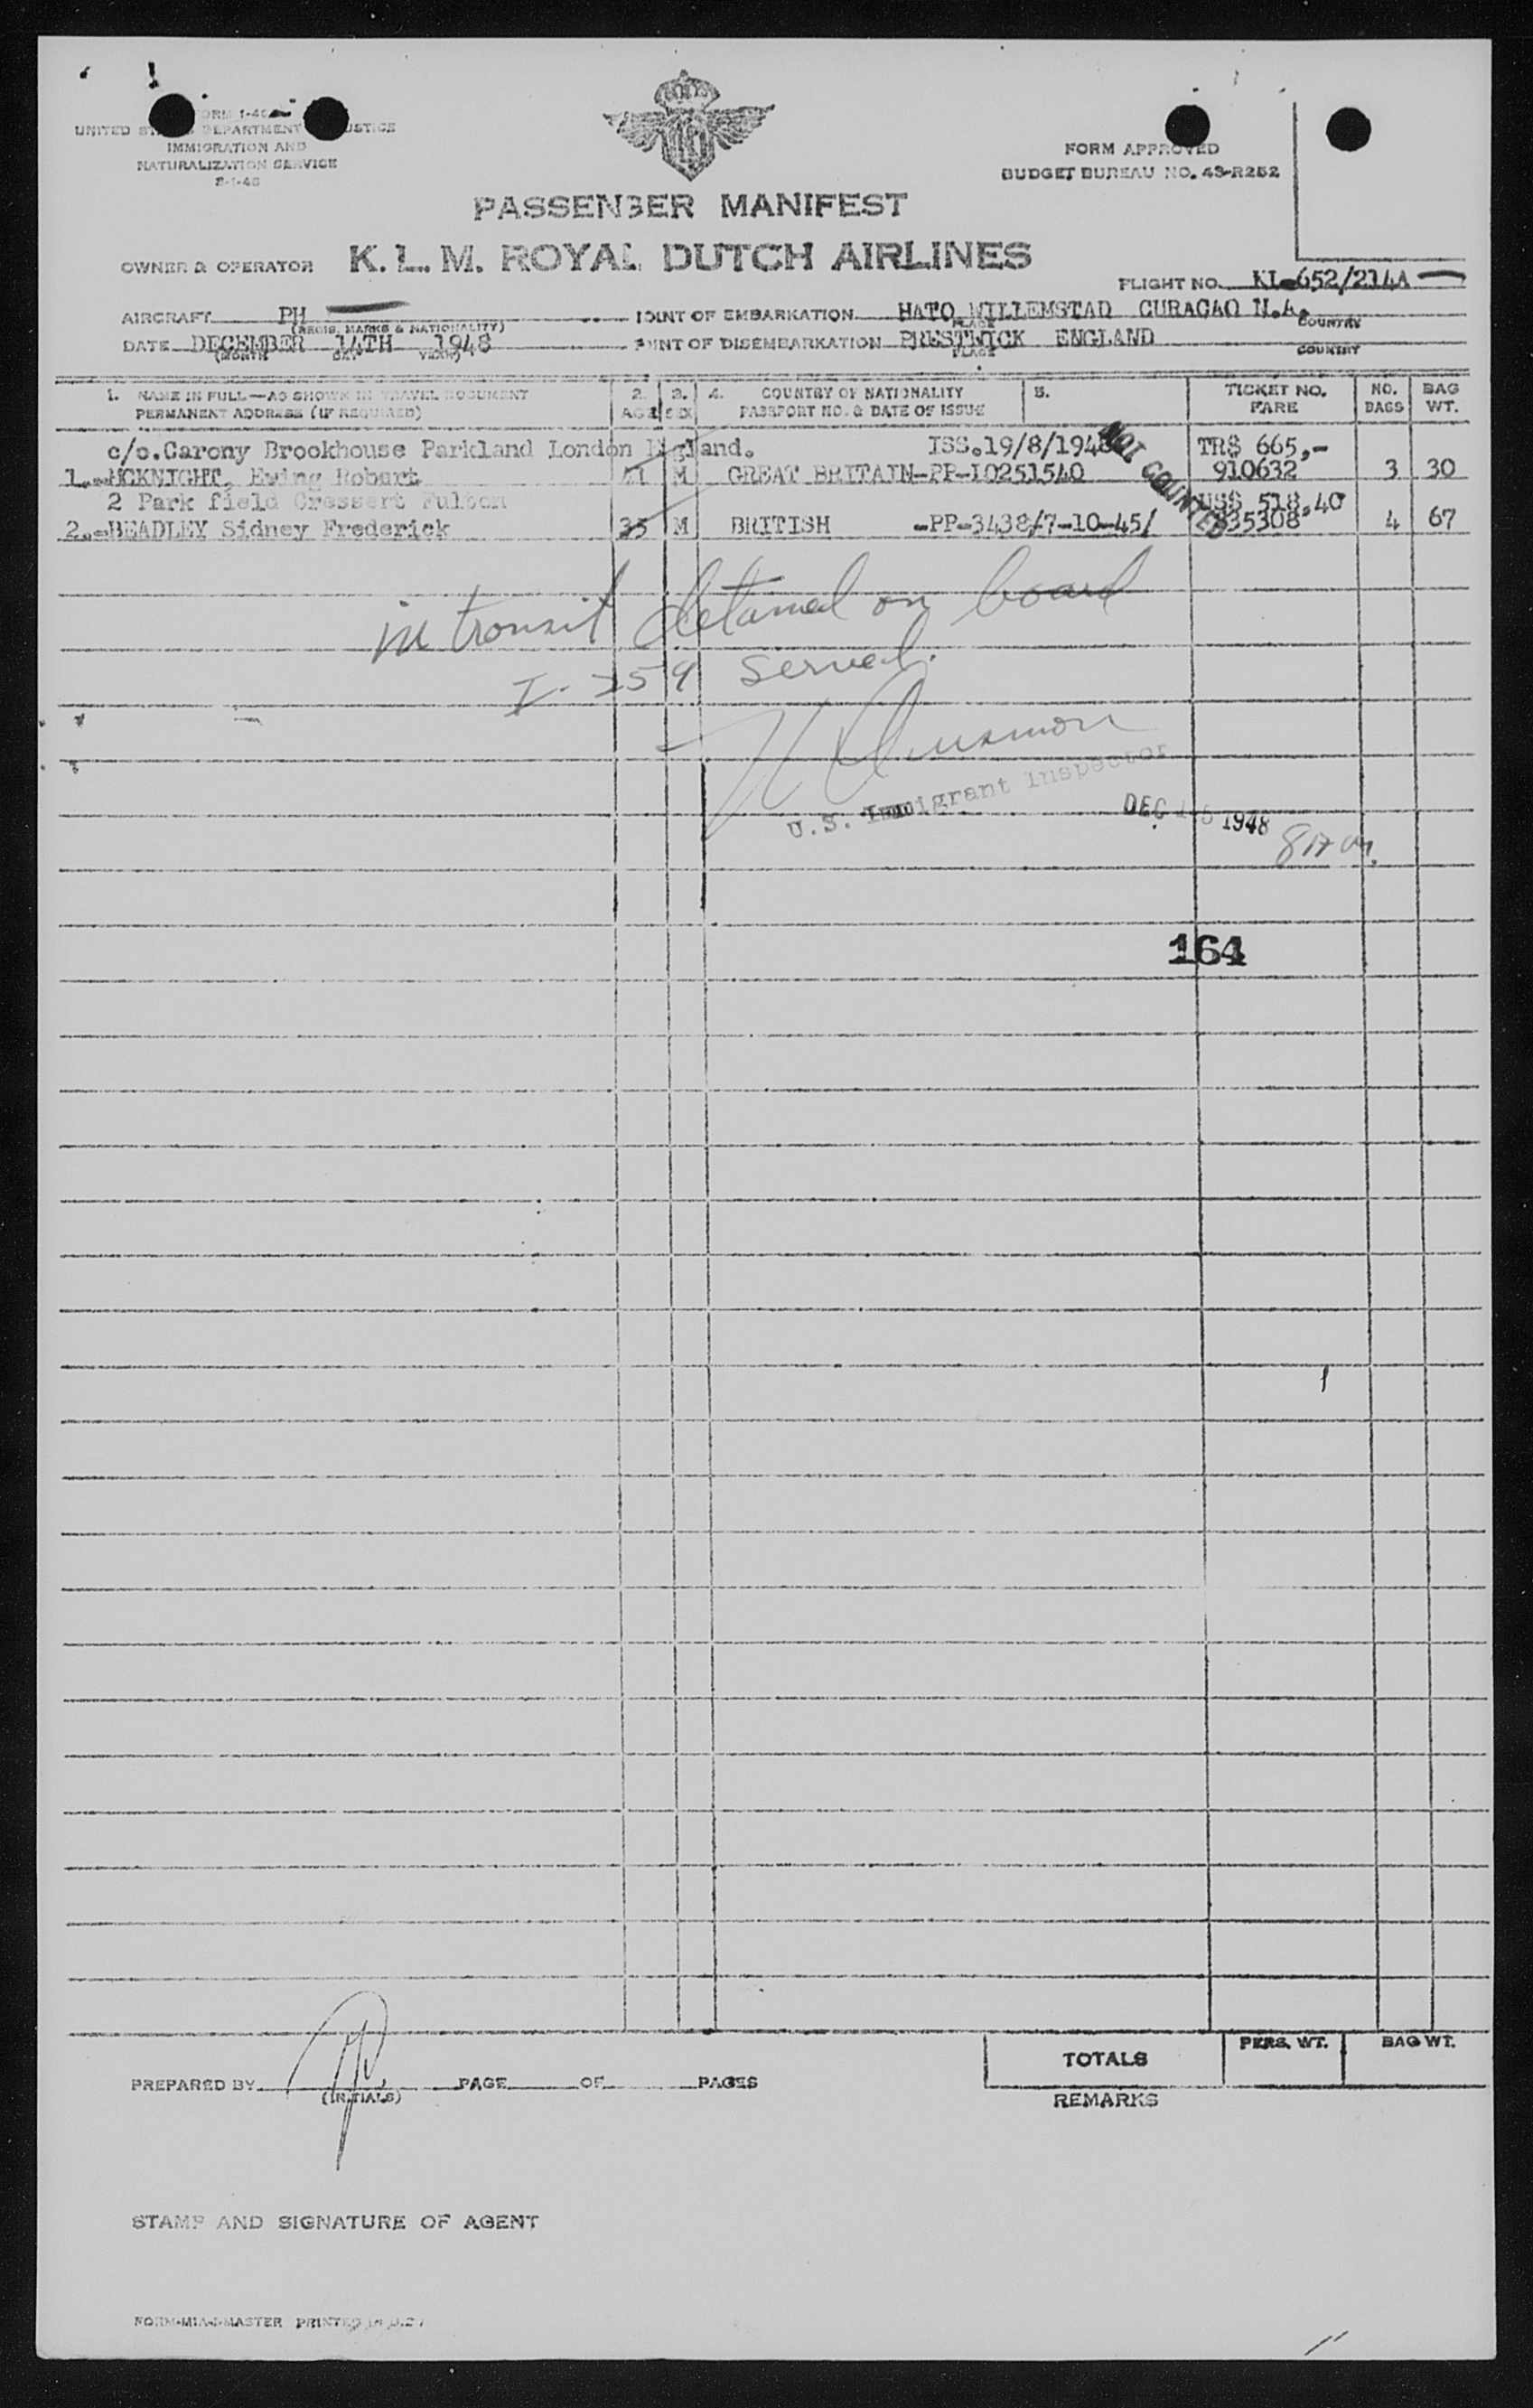 FORM I-4
UNITED DEPARTMENT JUSTICE
IMMIGRATION AND
NATURALIZATION SERVICE
FORM APPROVED
BUDGET BUREAU NO. 43-R252
PASSENGER MANIFEST
OWNER & OPERATOR K. L. M. ROYAL DUTCH AIRLINES
FLIGHT NO. KL-652/214A
AIRCRAFT PH
(REGIS. MARKS & NATIONALITY)
POINT OF EMBARKATION HATO WILLEMSTAD CURACAO N.A.
PLACE COUNTRY
DATE DECEMBER 14TH 1948
(MONTH DAY YEAR)
POINT OF DISEMBARKATION PRESTWICK ENGLAND
PLACE COUNTRY
1. NAME IN FULL—AS SHOWN IN TRAVEL DOCUMENT
PERMANENT ADDRESS (IF REQUIRED)
2. AGE
3. SEX
4. COUNTRY OF NATIONALITY
PASSPORT NO. & DATE OF ISSUE
5.
TICKET NO.
FARE
NO. BAGS
BAG WT.
c/o.Carony Brookhouse Parkland London England. ISS.19/8/1948 TR$ 665,-
1.-MCKNIGHT, Ewing Robert M GREAT BRITAIN-PP-I0251540 910632 3 30
2 Park field Cressert Fulton US$ 518,40
2.-BEADLEY Sidney Frederick 35 M BRITISH -PP-3438/7-10-45/ 835308 4 67
NOT COUNTED
in transit detained on board
I-259 served.
U.S. Immigrant Inspector
DEC 1948
164
PREPARED BY
(INITIALS)
PAGE OF PAGES
TOTALS
PERS. WT.
BAG WT.
REMARKS
STAMP AND SIGNATURE OF AGENT
FORM-MIA-MASTER PRINTED IN